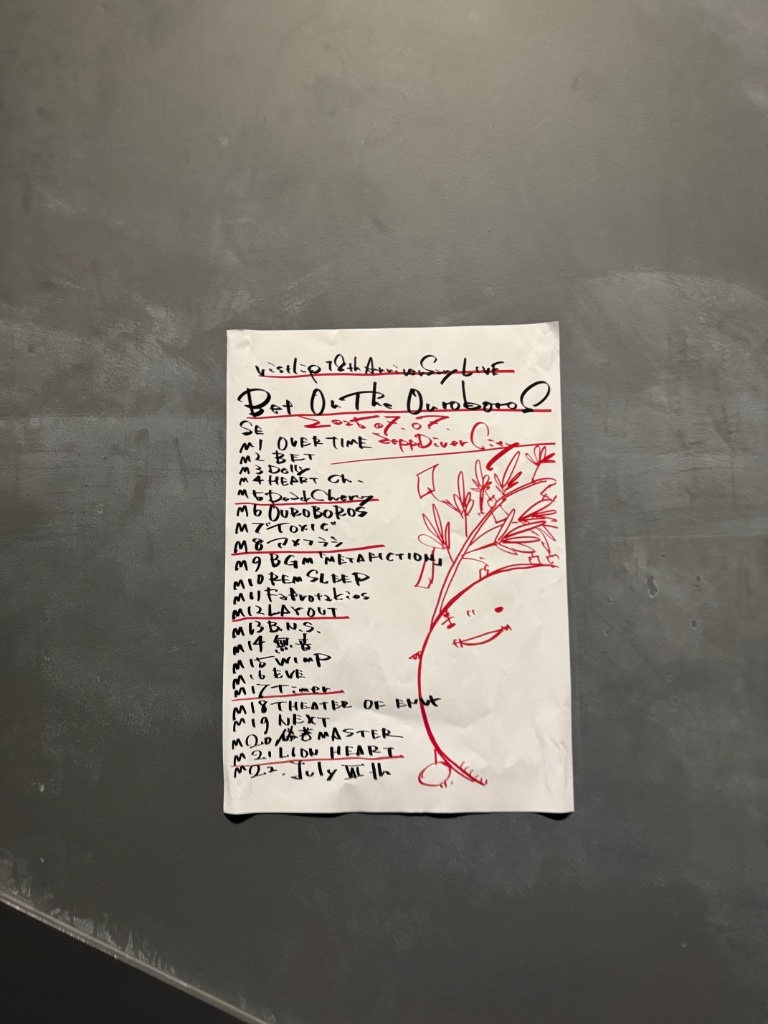 vistlip 18th Anniversary LIVE
Bet On The Ouroboros
2025.07.07.
SE
Zepp DiverCity
M1 OVERTIME
M2 BET
M3 Dolly
M4 HEART Ch.
M5 Dead Cherry
M6 OUROBOROS
M7 "TOXIC"
M8 アメフラシ
M9 BGM「METAFICTION」
M10 REM SLEEP
M11 Fafrotskies
M12 LAYOUT
M13 B.N.S.
M14 無音
M15 WIMP
M16 EVE
M17 Timer
M18 THEATER OF ENVY
M19 NEXT
M20 MASTER
M21 LION HEART
M22. July VIIth